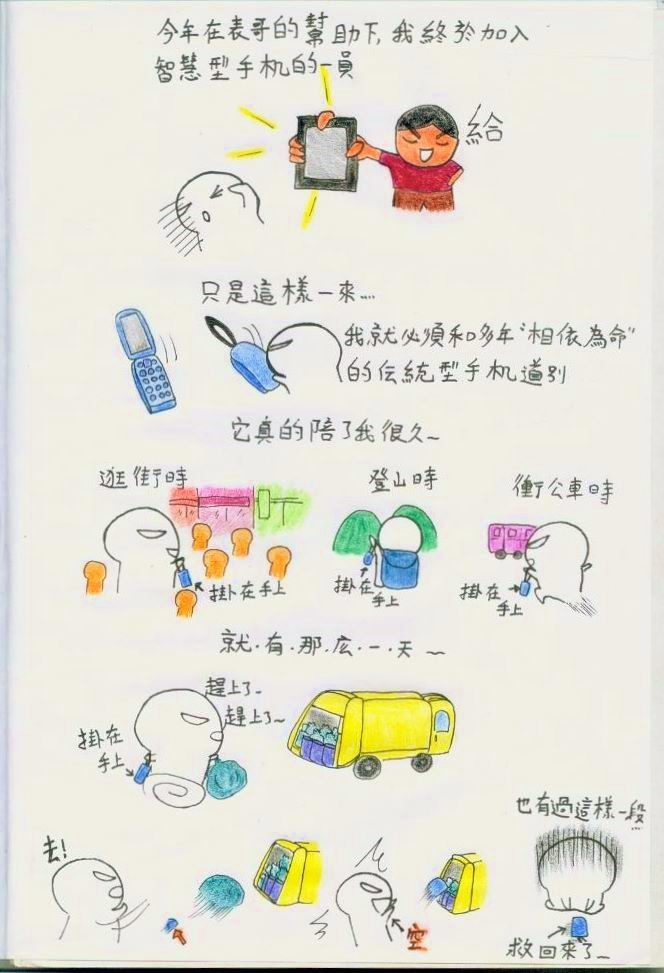 今年在表哥的幫助下,我終於加入
智慧型手机的一員
給
只是這樣一來....
我就必須和多年"相依為命"
的伝統型手机道別
它真的陪了我很久~
逛街時
登山時
衝公車時
掛在手上
掛在
手上
掛在
手上
就.有.那.広.一.天 ~
趕上了~
趕上了~
掛在
手上
也有過這樣一段
去!
空
救回來了~